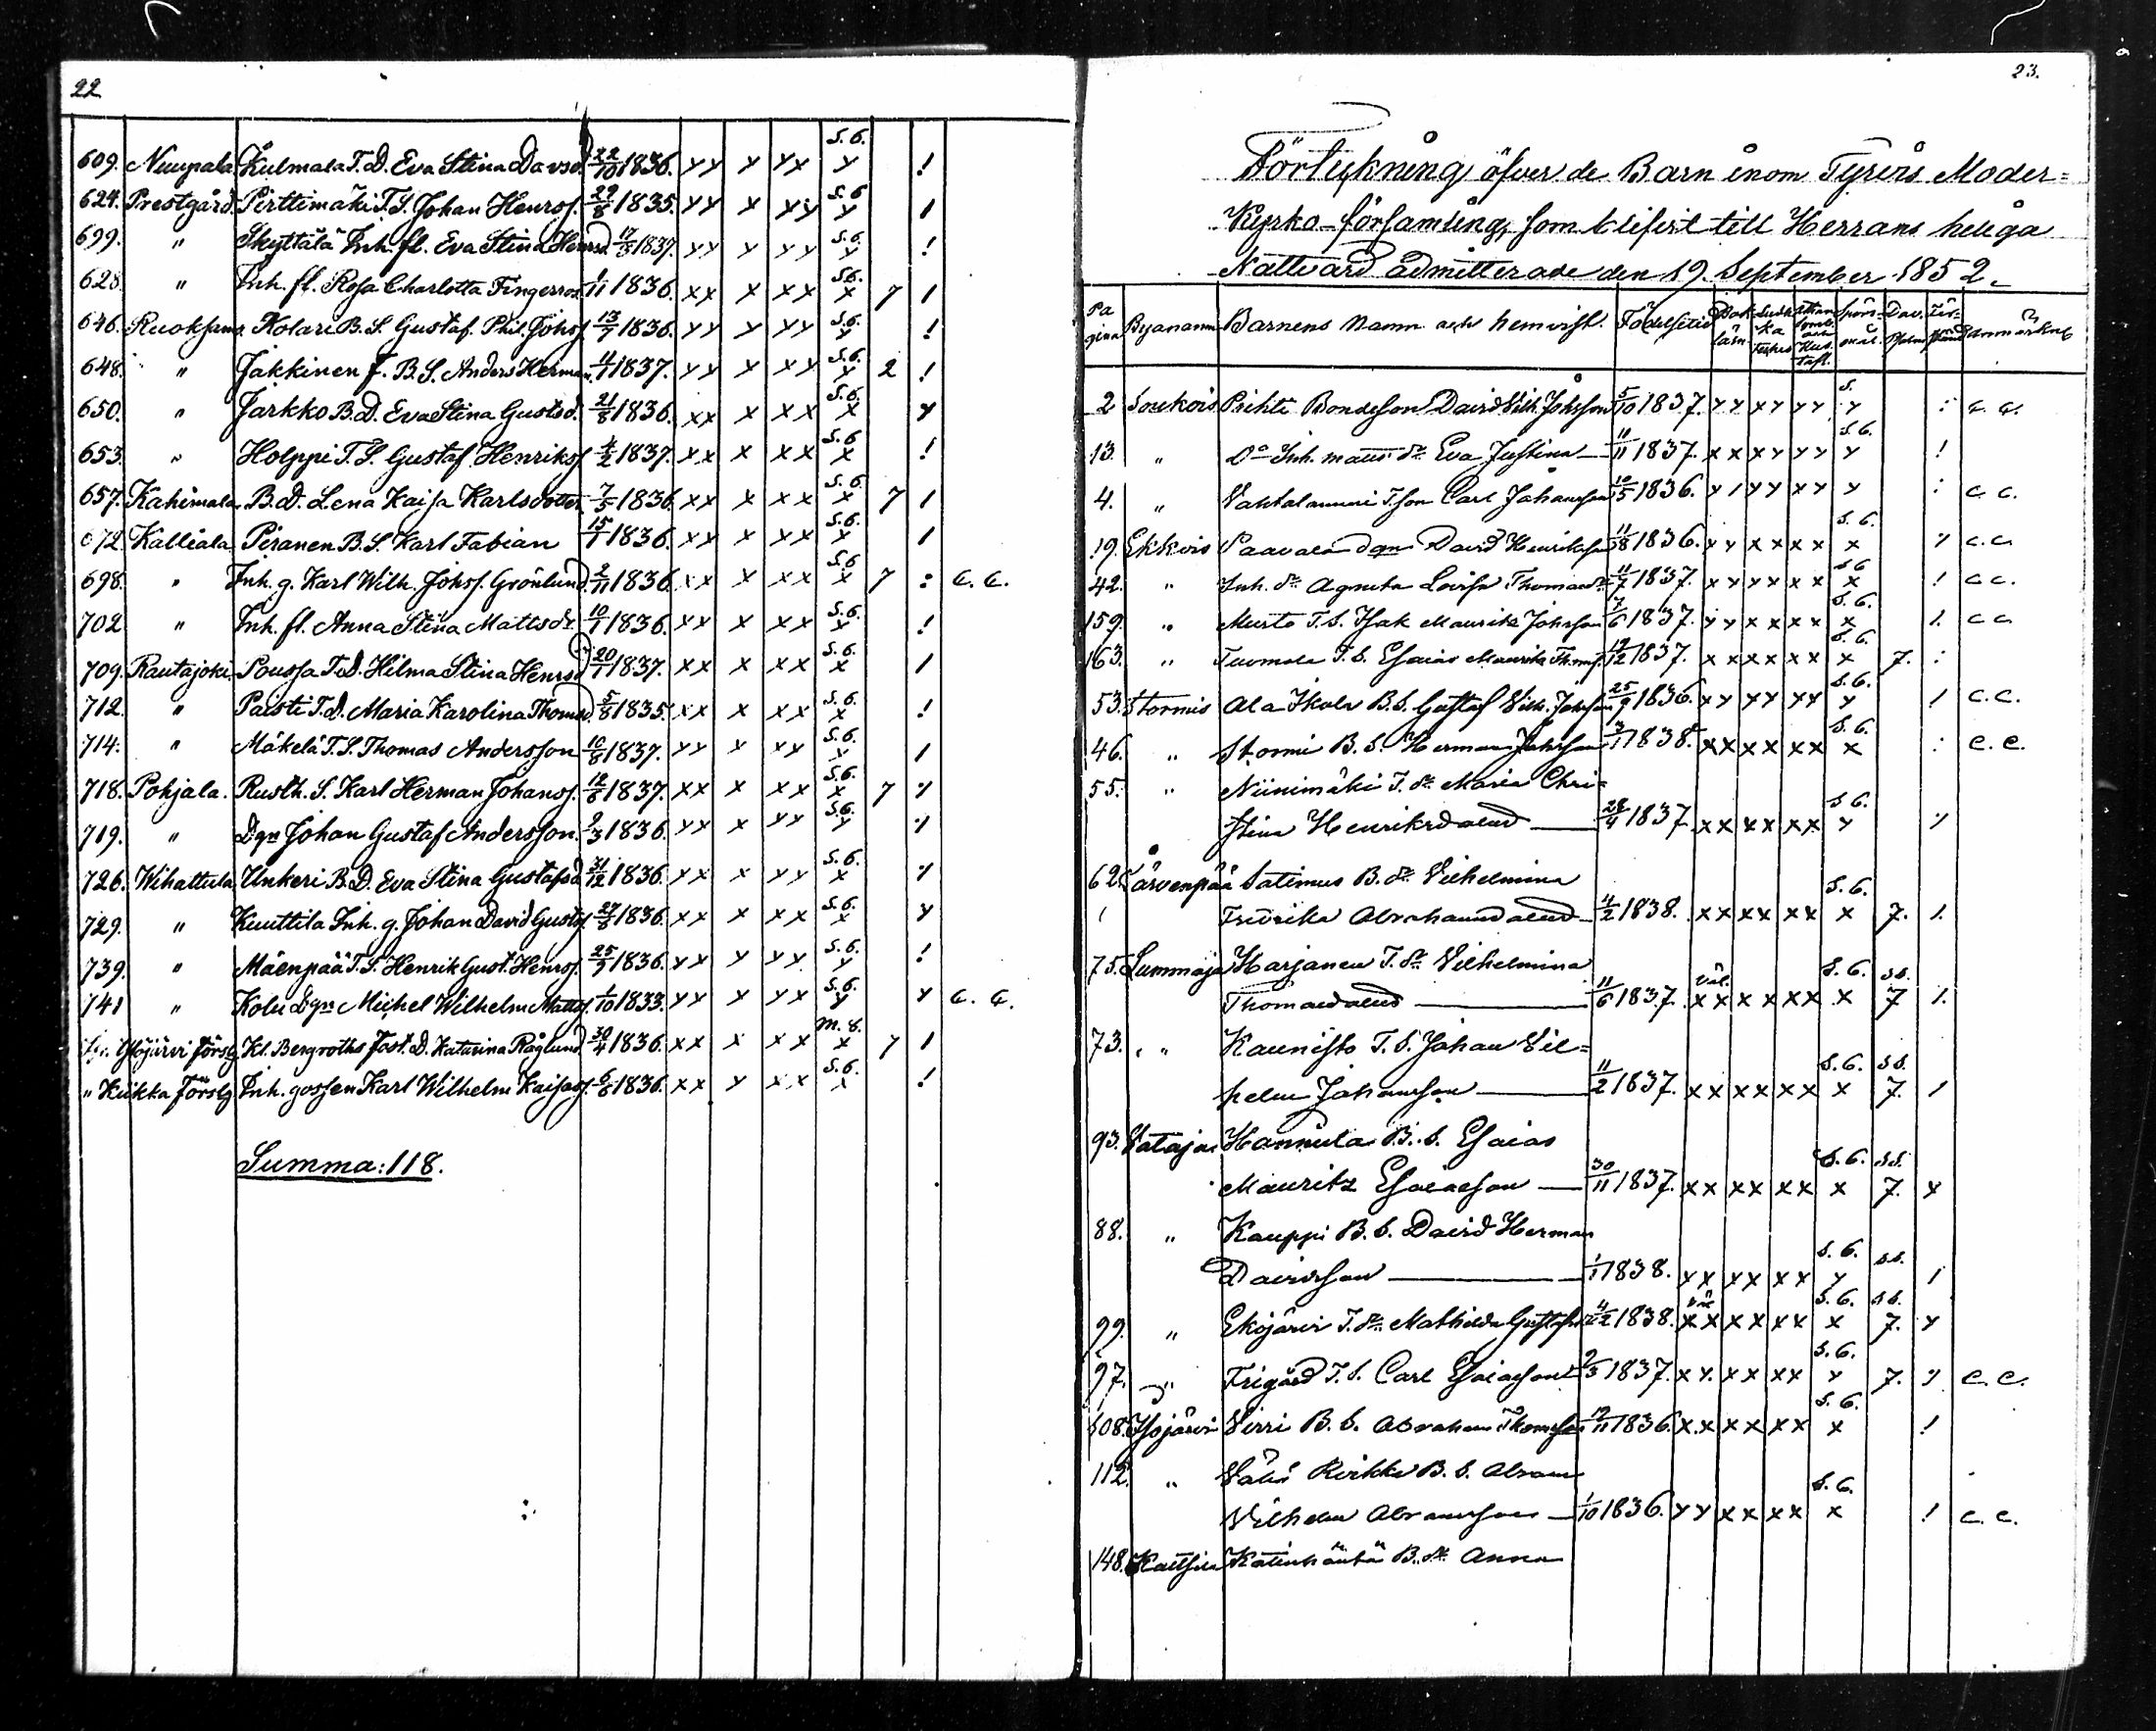 22
609. Nuupala Kulmala T.D. Eva Stina Davsd. 22/10 1836. xx x xx S.G. x !
624. Prestgård. Pirttimäki T.S. Johan Henrss. 29/8 1835. xx x xx S.G. x 1
699. " Skyttälä Inh. fl. Eva Stina Henrsd. 17/5 1837. xx x xx S.G. x !
628. " Inh. fl. Rosa Charlotta Fingerroos. 1/11 1836. xx x xx S.G. x 7 1
646. Kolari B.S. Gustaf Phil. Johss. 13/7 1836. xx x xx S.G. x !
648. " Jakkinen f. B.S. Anders Herman. 4/1 1837. xx x xx S.G. x 2 !
650. " Jarkko B.D. Eva Stina Gustsd. 21/8 1836. xx x xx S.G. x x
653. " Holppi T.S. Gustaf Henrikss. 4/2 1837. xx x xx S.G. x !
657. Kahimala B.D. Lena Kaisa Karlsdotter. 7/5 1836. xx x xx S.G. x 7 1
672. Kalliala Piranen B.S. Karl Fabian 15/1 1836. xx x xx S.G. x 1
698. " Inh. g. Karl Wilh. Johss. Grönlund. 2/11 1836. xx x xx S.G. x 7 : C. C.
702 " Inh. fl. Anna Stina Mattsdr. 10/1 1836. xx x xx S.G. x !
709. Rautajoki Poussa T.D. Hilma Stina Henrsd. 20/1 1837. xx x xx S.G. x 1
712. " Paisti T.D. Maria Karolina Thomsd. 5/8 1835. xx x xx S.G. x !
714. " Mäkelä T.S. Thomas Andersson 10/8 1837. xx x xx S.G. x 1
718. Pohjala. Rusth. S. Karl Herman Johanss. 12/6 1837. xx x xx S.G. x 7 x
719. " Dgn Johan Gustaf Andersson. 9/3 1836. xx x xx S.G. x x
726. Wihattula Unkeri B.D. Eva Stina Gustafsd. 31/12 1836. xx x xx S.G. x x
729. " Kuuttila Inh. g. Johan David Gustss. 27/8 1836. xx x xx S.G. x x
739. " Mäenpää T.S. Henrik Gust. Henrss. 25/7 1836. xx x xx S.G. x !
741 " Kolu Dgn Michel Wilhelm Mattss. 1/10 1833. xx x xx S.G. x x C. C.
Ylöjärvi Försg. Kl. Bergroths Fost. D. Katarina Råglund. 30/4 1836. xx x xx M.G. x 7 1
" Kiikka Förslg Inh. gossen Karl Wilhelm Kaisass. 6/6 1836. xx x xx S.G. x !
Summa: 118.
23.
Förteckning öfver de Barn inom Tyrvis Moder=
Kyrko-församling, som blifvit till Herrans heliga
Nattvard admitterade den 19. September 1852.
Pagina Byanamn Barnens namn och hemvist. Födelsetid Bok läsn
2 Soukois Pirhti Bondeson David Vilh. Johsson 5/10 1837. xx xx xx S. x : C. C.
13. " Do Inh. dr Eva Justina 11/11 1837. xx xx xx S.G. x !
4. " T.son Carl Johansson 10/5 1836. xx xx xx x : C. C.
19. Ekkois Paavola Dgn David Henriksson 11/8 1836. xx xx xx S.G. x x C. C.
42. " Inh. dr Agneta Lovisa Thomasdr 11/7 1837. xx xx xx S.G. x ! C. C.
159. " Murto T.S. Isak Maurits Johsson 7/6 1837. xx xx xx S.G. x x C. C.
163. " Tuomola T.S. Esaias Maurits Thomss. 19/12 1837. xx xx xx S.G. x 7. :
53. Stormis Ala Ikola B.S. Gustaf Vilh. Johsson 25/9 1836. xx xx xx S.G. x 1 C. C.
46. " Stormi B.S. Herman Johsson 3/1 1838. xx xx xx S.G. x : C. C.
55. " Niinimäki T. dr Maria Chri=
stina Henriksd 28/4 1837. xx xx xx S.G. x x
62. Järvenpää Satimus B. dr Vilhelmina
Fredrika Abrahams 4/2 1838. xx xx xx S.G. x 7. x
75. Lummaja Harjanen T. dr Vilhelmina
Thomas 11/6 1837. xx xx xx S.G. x ss. 7 x
73. " Kaunisto T.S. Johan Vil=
helm Johansson 11/2 1837. xx xx xx S.G. x ss. 7. 1
93. Vataja Hannula B.S. Esaias
Mauritz Esaiasson 30/11 1837. xx xx xx S.G. x ss. 7. x
88. " Kauppi B.S. David Herman
Davidsson 1/1 1838. xx xx xx S.G. x ss. 1
99. " Ekojärvi T. dr Mathilda Gustafsd 4/2 1838. xx xx xx S.G. x ss. 7. x
97. " Frigård T.S. Carl Esaiasson 9/3 1837. xx xx xx S.G. x 7. x C. C.
108. Isojärvi Virri B.S. Abraham Thomsson 19/11 1836. xx xx xx S.G. x !
112. " B.S. Abram
Vilhelm Abramsson 1/10 1836. xx xx xx S.G. x ! C. C.
148. B. dr Anna